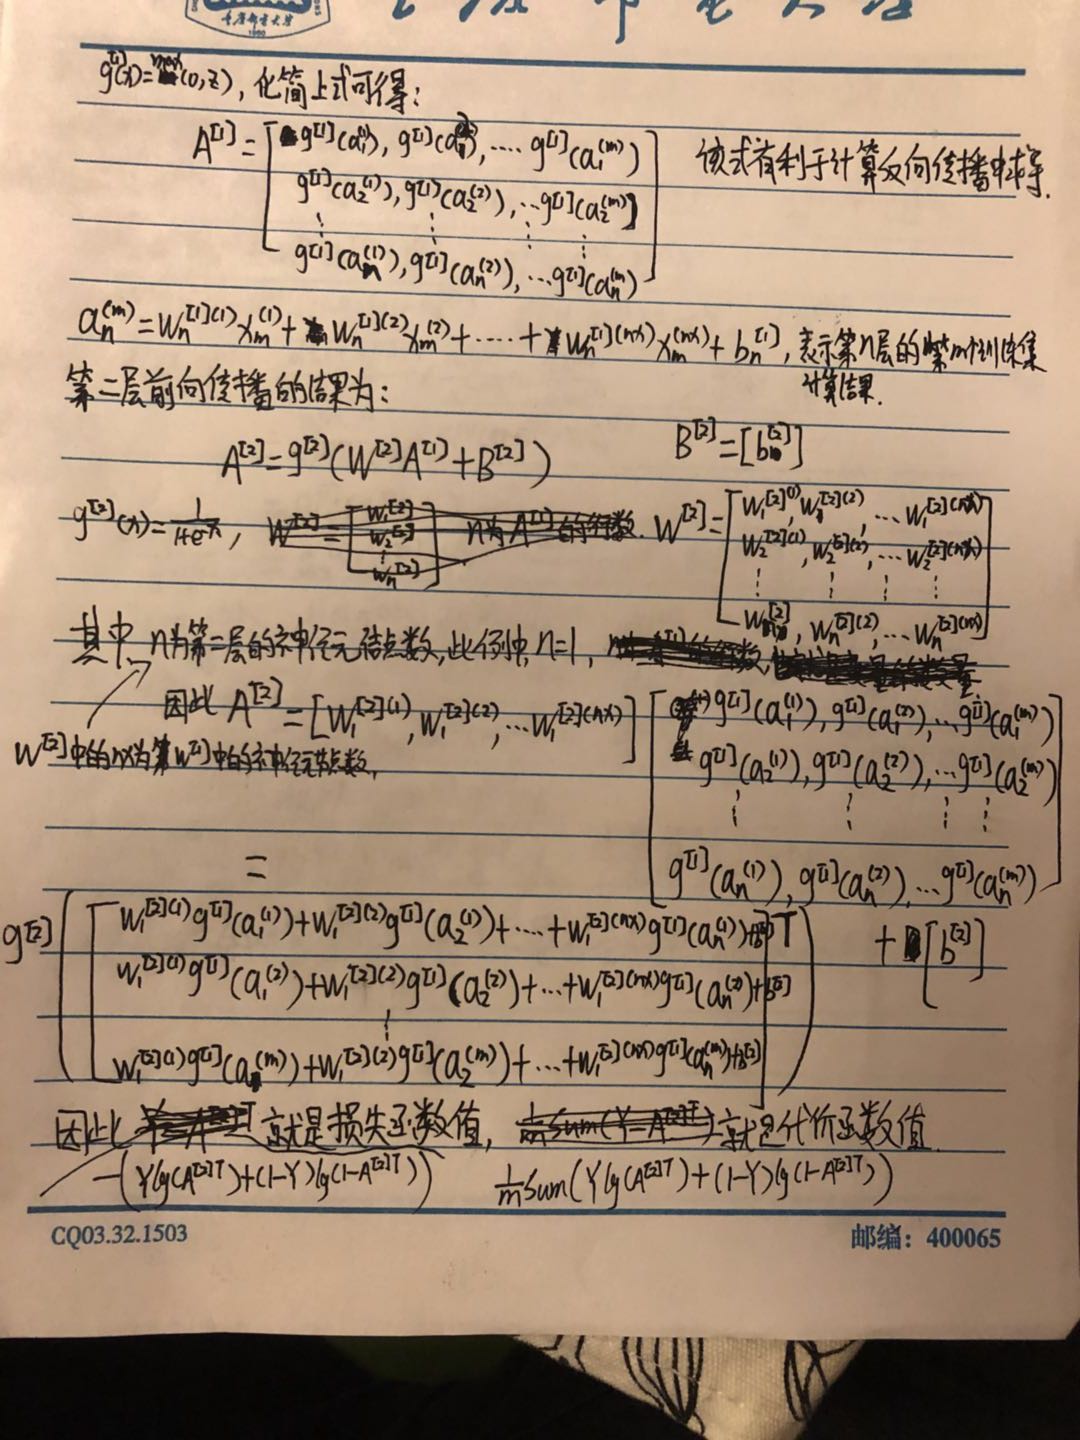 g^[1](x)=max(0,z), 化简上式可得:
A^[1]=[g^[1](a_1^(1)), g^[1](a_1^(2)), .... g^[1](a_1^(m))
g^[1](a_2^(1)), g^[1](a_2^(2)), ...g^[1](a_2^(m))
g^[1](a_n^(1)), g^[1](a_n^(2)), ...g^[1](a_n^(m))]
该式有利于计算反向传播中求导.
a_n^(m)=w_n^[1](1)x_m^(1)+w_n^[1](2)x_m^(2)+.....+w_n^[1](nx)x_m^(nx)+b_n^[1], 表示第n层的第m个训练集
计算结果.
第二层前向传播的结果为:
A^[2]=g^[2](W^[2]A^[1]+B^[2]) B^[2]=[b^[2]]
g^[2](x)=1/(1+e^-x), W^[2]=[w_1^[2](1), w_1^[2](2), ... w_1^[2](nx)
w_2^[2](1), w_2^[2](2), ... w_2^[2](nx)
w_n^[2], w_n^[2](2), ... w_n^[2](nx)]
其中n为第二层的神经元结点数,此例中,n=1,
因此A^[2]=[w_1^[2](1), w_1^[2](2), ...w_1^[2](nx)] [g^[1](a_1^(1)), g^[1](a_1^(2)), ...g^[1](a_1^(m))
W^[2]中的nx为第W^[1]中的神经元节点数,
g^[1](a_2^(1)), g^[1](a_2^(2)), ...g^[1](a_2^(m))
g^[1](a_n^(1)), g^[1](a_n^(2)), ...g^[1](a_n^(m))]
+[b^[2]]
=
g^[2]([w_1^[2](1)g^[1](a_1^(1))+w_1^[2](2)g^[1](a_2^(1))+....+w_1^[2](nx)g^[1](a_n^(1))+b^[2]
w_1^[2](1)g^[1](a_1^(2))+w_1^[2](2)g^[1](a_2^(2))+...+w_1^[2](nx)g^[1](a_n^(2))+b^[2]
w_1^[2](1)g^[1](a_1^(m))+w_1^[2](2)g^[1](a_2^(m))+...+w_1^[2](nx)g^[1](a_n^(m))+b^[2]]^T)
因此 就是损失函数值, 就是代价函数值.
-(Ylg(A^[2]T)+(1-Y)lg(1-A^[2]T)) 1/m sum(Ylg(A^[2]T)+(1-Y)lg(1-A^[2]T))
CQ03.32.1503 邮编：400065